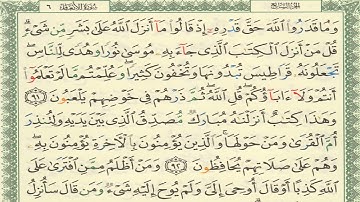 الجزء السابع ٦ سورة الأنعام
وَمَا قَدَرُوا۟ ٱللَّهَ حَقَّ قَدْرِهِۦٓ إِذْ قَالُوا۟ مَآ أَنزَلَ ٱللَّهُ عَلَىٰ بَشَرٍ مِّن شَىْءٍ
قُلْ مَنْ أَنزَلَ ٱلْكِتَٰبَ ٱلَّذِى جَآءَ بِهِۦ مُوسَىٰ نُورًا وَهُدًى لِّلنَّاسِ
تَجْعَلُونَهُۥ قَرَاطِيسَ تُبْدُونَهَا وَتُخْفُونَ كَثِيرًا وَعُلِّمْتُم مَّا لَمْ تَعْلَمُوٓا۟
أَنتُمْ وَلَآ ءَابَآؤُكُمْ قُلِ ٱللَّهُ ثُمَّ ذَرْهُمْ فِى خَوْضِهِمْ يَلْعَبُونَ ٩١
وَهَٰذَا كِتَٰبٌ أَنزَلْنَٰهُ مُبَارَكٌ مُّصَدِّقُ ٱلَّذِى بَيْنَ يَدَيْهِ وَلِتُنذِرَ
أُمَّ ٱلْقُرَىٰ وَمَنْ حَوْلَهَا وَٱلَّذِينَ يُؤْمِنُونَ بِٱلْءَاخِرَةِ يُؤْمِنُونَ بِهِۦ
وَهُمْ عَلَىٰ صَلَاتِهِمْ يُحَافِظُونَ ٩٢ وَمَنْ أَظْلَمُ مِمَّنِ ٱفْتَرَىٰ عَلَى
ٱللَّهِ كَذِبًا أَوْ قَالَ أُوحِىَ إِلَىَّ وَلَمْ يُوحَ إِلَيْهِ شَىْءٌ وَمَن قَالَ سَأُنزِلُ